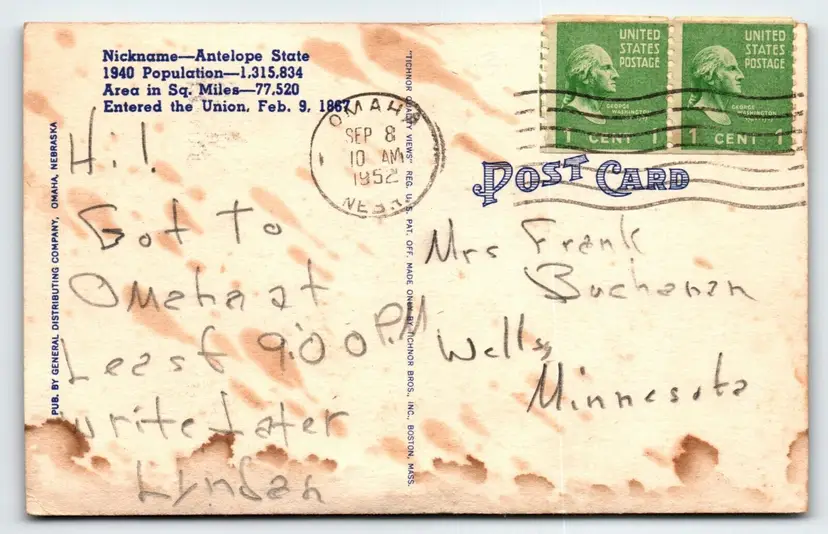 Nickname—Antelope State
1940 Population—1,315,834
Area in Sq. Miles—77,520
Entered the Union, Feb. 9, 1867
PUB. BY GENERAL DISTRIBUTING COMPANY, OMAHA, NEBRASKA
Hi!
Got To
Omaha at
Least 9:00 P.M
write Later
Lyndan
"TICHNOR QUALITY VIEWS" REG. U. S. PAT. OFF. MADE ONLY BY TICHNOR BROS., INC., BOSTON, MASS.
OMAHA
SEP 8
10 AM
1952
NEBR.
UNITED
STATES
POSTAGE
GEORGE
WASHINGTON
1 CENT 1
UNITED
STATES
POSTAGE
GEORGE
WASHINGTON
1 CENT 1
POST CARD
Mrs Frank
Buchanan
Wells,
Minnesota